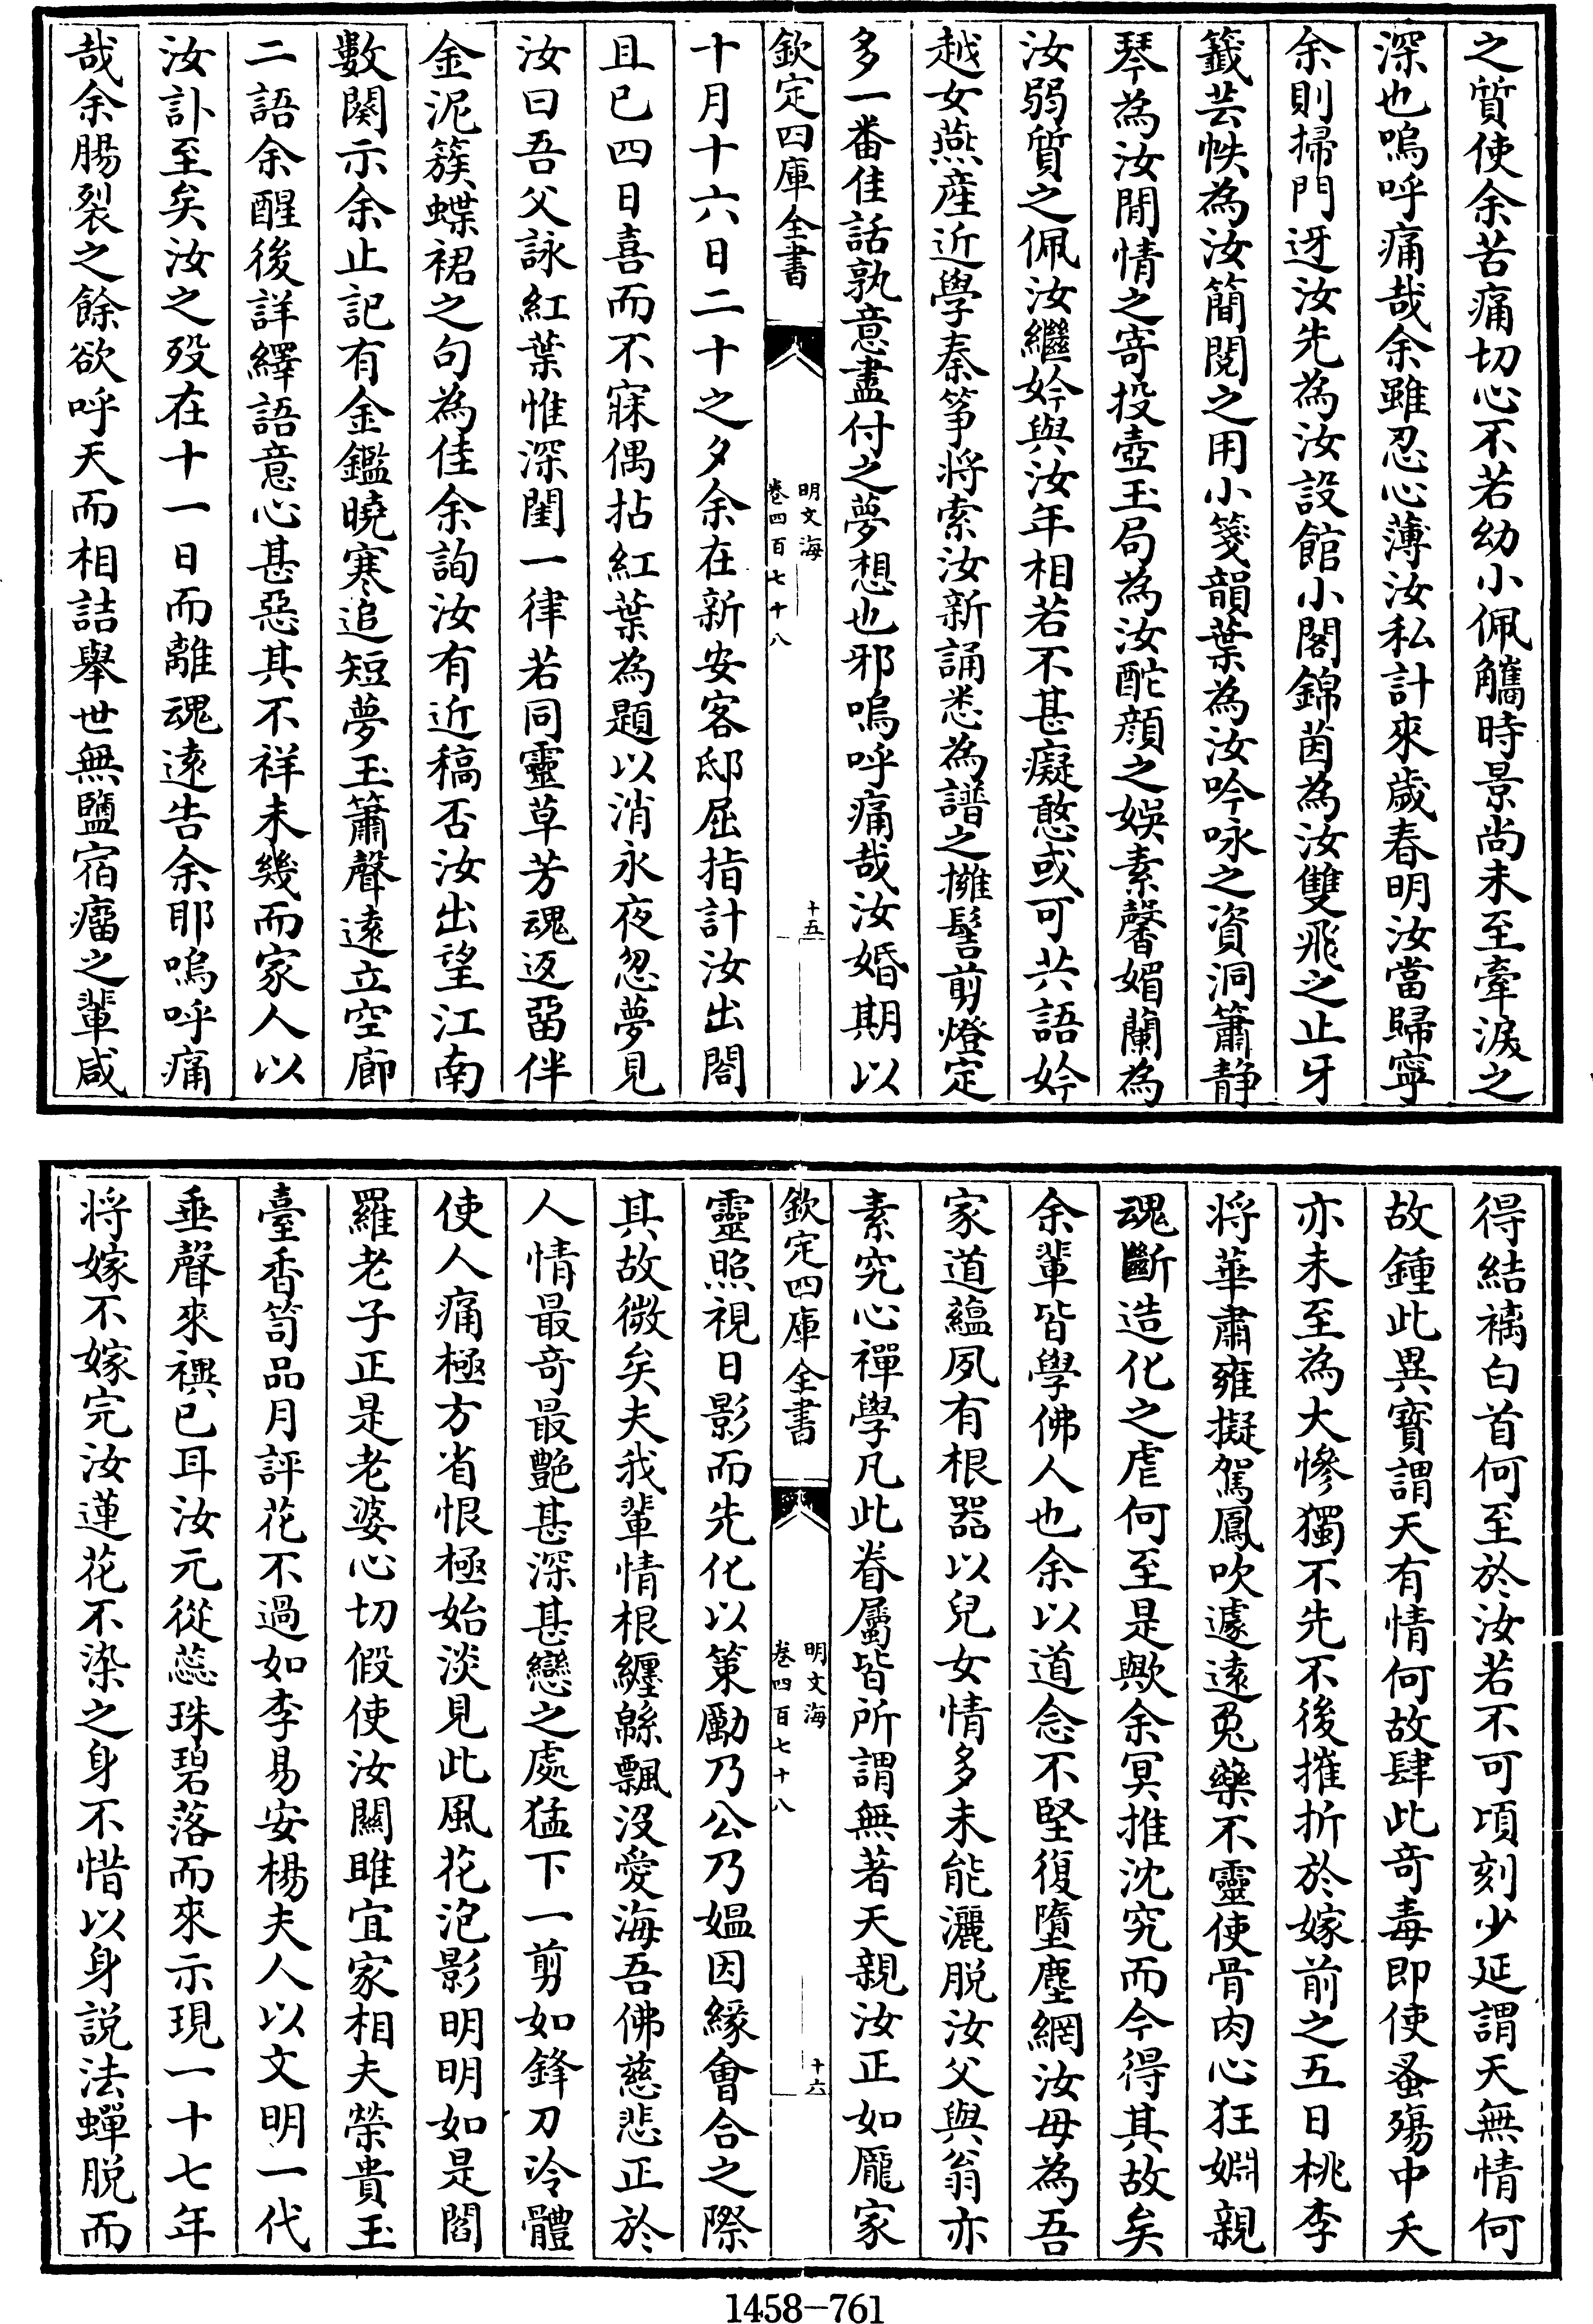 之質使余苦痛切心不若幼小佩觿時景尚未至牽淚之
深也嗚呼痛哉余雖忍心薄汝私計來歲春明汝當歸寧
余則掃門迓汝先為汝設館小閣錦茵為汝雙飛之止牙
籤芸帙為汝簡閱之用小箋韻葉為汝吟咏之資洞簫静
琴為汝閒情之寄投壺玉局為汝酡顔之娛素馨媚蘭為
汝弱質之佩汝繼妗與汝年相若不甚癡憨或可共語妗
越女燕産近學秦筝将索汝新誦悉為譜之擁髻剪燈定
多一番佳話孰意盡付之夢想也邪嗚呼痛哉汝婚期以
欽定四庫全書
明文海
卷四百七十八
十五
十月十六日二十之夕余在新安客邸屈指計汝出閣
且已四日喜而不寐偶拈紅葉為題以消永夜忽夢見
汝曰吾父詠紅葉惟深閨一律若同靈草芳魂返畱伴
金泥簇蝶裙之句為佳余詢汝有近稿否汝出望江南
數闋示余止記有金鑑曉寒追短夢玉簫聲遠立空廊
二語余醒後詳繹語意心甚惡其不祥未幾而家人以
汝訃至矣汝之殁在十一日而離魂遠告余耶嗚呼痛
哉余腸裂之餘欲呼天而相詰舉世無鹽宿瘤之輩咸
得結褵白首何至於汝若不可頃刻少延謂天無情何
故鍾此異寳謂天有情何故肆此奇毒即使蚤殤中夭
亦未至為大慘獨不先不後摧折於嫁前之五日桃李
将華肅雍擬駕鳳吹遽遠兎藥不靈使骨肉心狂姻親
魂斷造化之虐何至是歟余冥推沈究而今得其故矣
余輩皆學佛人也余以道念不堅復墮塵網汝母為吾
家道蘊夙有根器以兒女情多未能灑脱汝父與翁亦
素究心禪學凡此眷屬皆所謂無著天親汝正如龎家
欽定四庫全書
明文海
卷四百七十八
十六
靈照視日影而先化以策勵乃公乃媼因緣會合之際
其故微矣夫我輩情根纏緜飄沒愛海吾佛慈悲正於
人情最奇最艶甚深甚戀之處猛下一剪如鋒刀泠體
使人痛極方省恨極始淡見此風花泡影明明如是閻
羅老子正是老婆心切假使汝關雎宜家相夫榮貴玉
臺香笥品月評花不過如李易安楊夫人以文明一代
垂聲來禩已耳汝元從蕊珠碧落而來示現一十七年
将嫁不嫁完汝蓮花不染之身不惜以身説法蟬脱而
1458-761